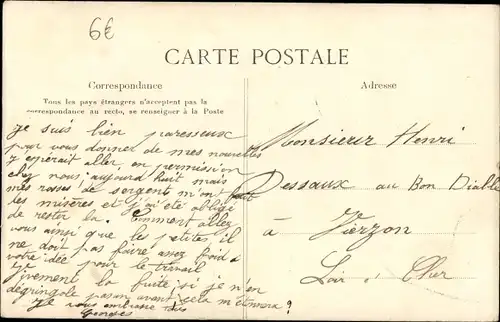 6€
CARTE POSTALE
Correspondance
Tous les pays étrangers n'acceptent pas la
correspondance au recto, se renseigner à la Poste
Adresse
Je suis bien paresseux
pour vous donner de mes nouvelles
J'espérait aller en permission
chez nous aujourd huit mais
mes rosses de sergent m'ont fait
des misères et j'ai été obligé
de rester la. Comment allez
vous ainsi que la petite, il
ne doit pas faire assez froid à
votre idée pour le travail
Vivement la fuite, si je n'en
dégringole pas avant cela m'étonnera?
Je vous embrasse tous
Georges
Monsieur Henri
Dessaux au Bon Diable
à Vierzon
Loir et Cher